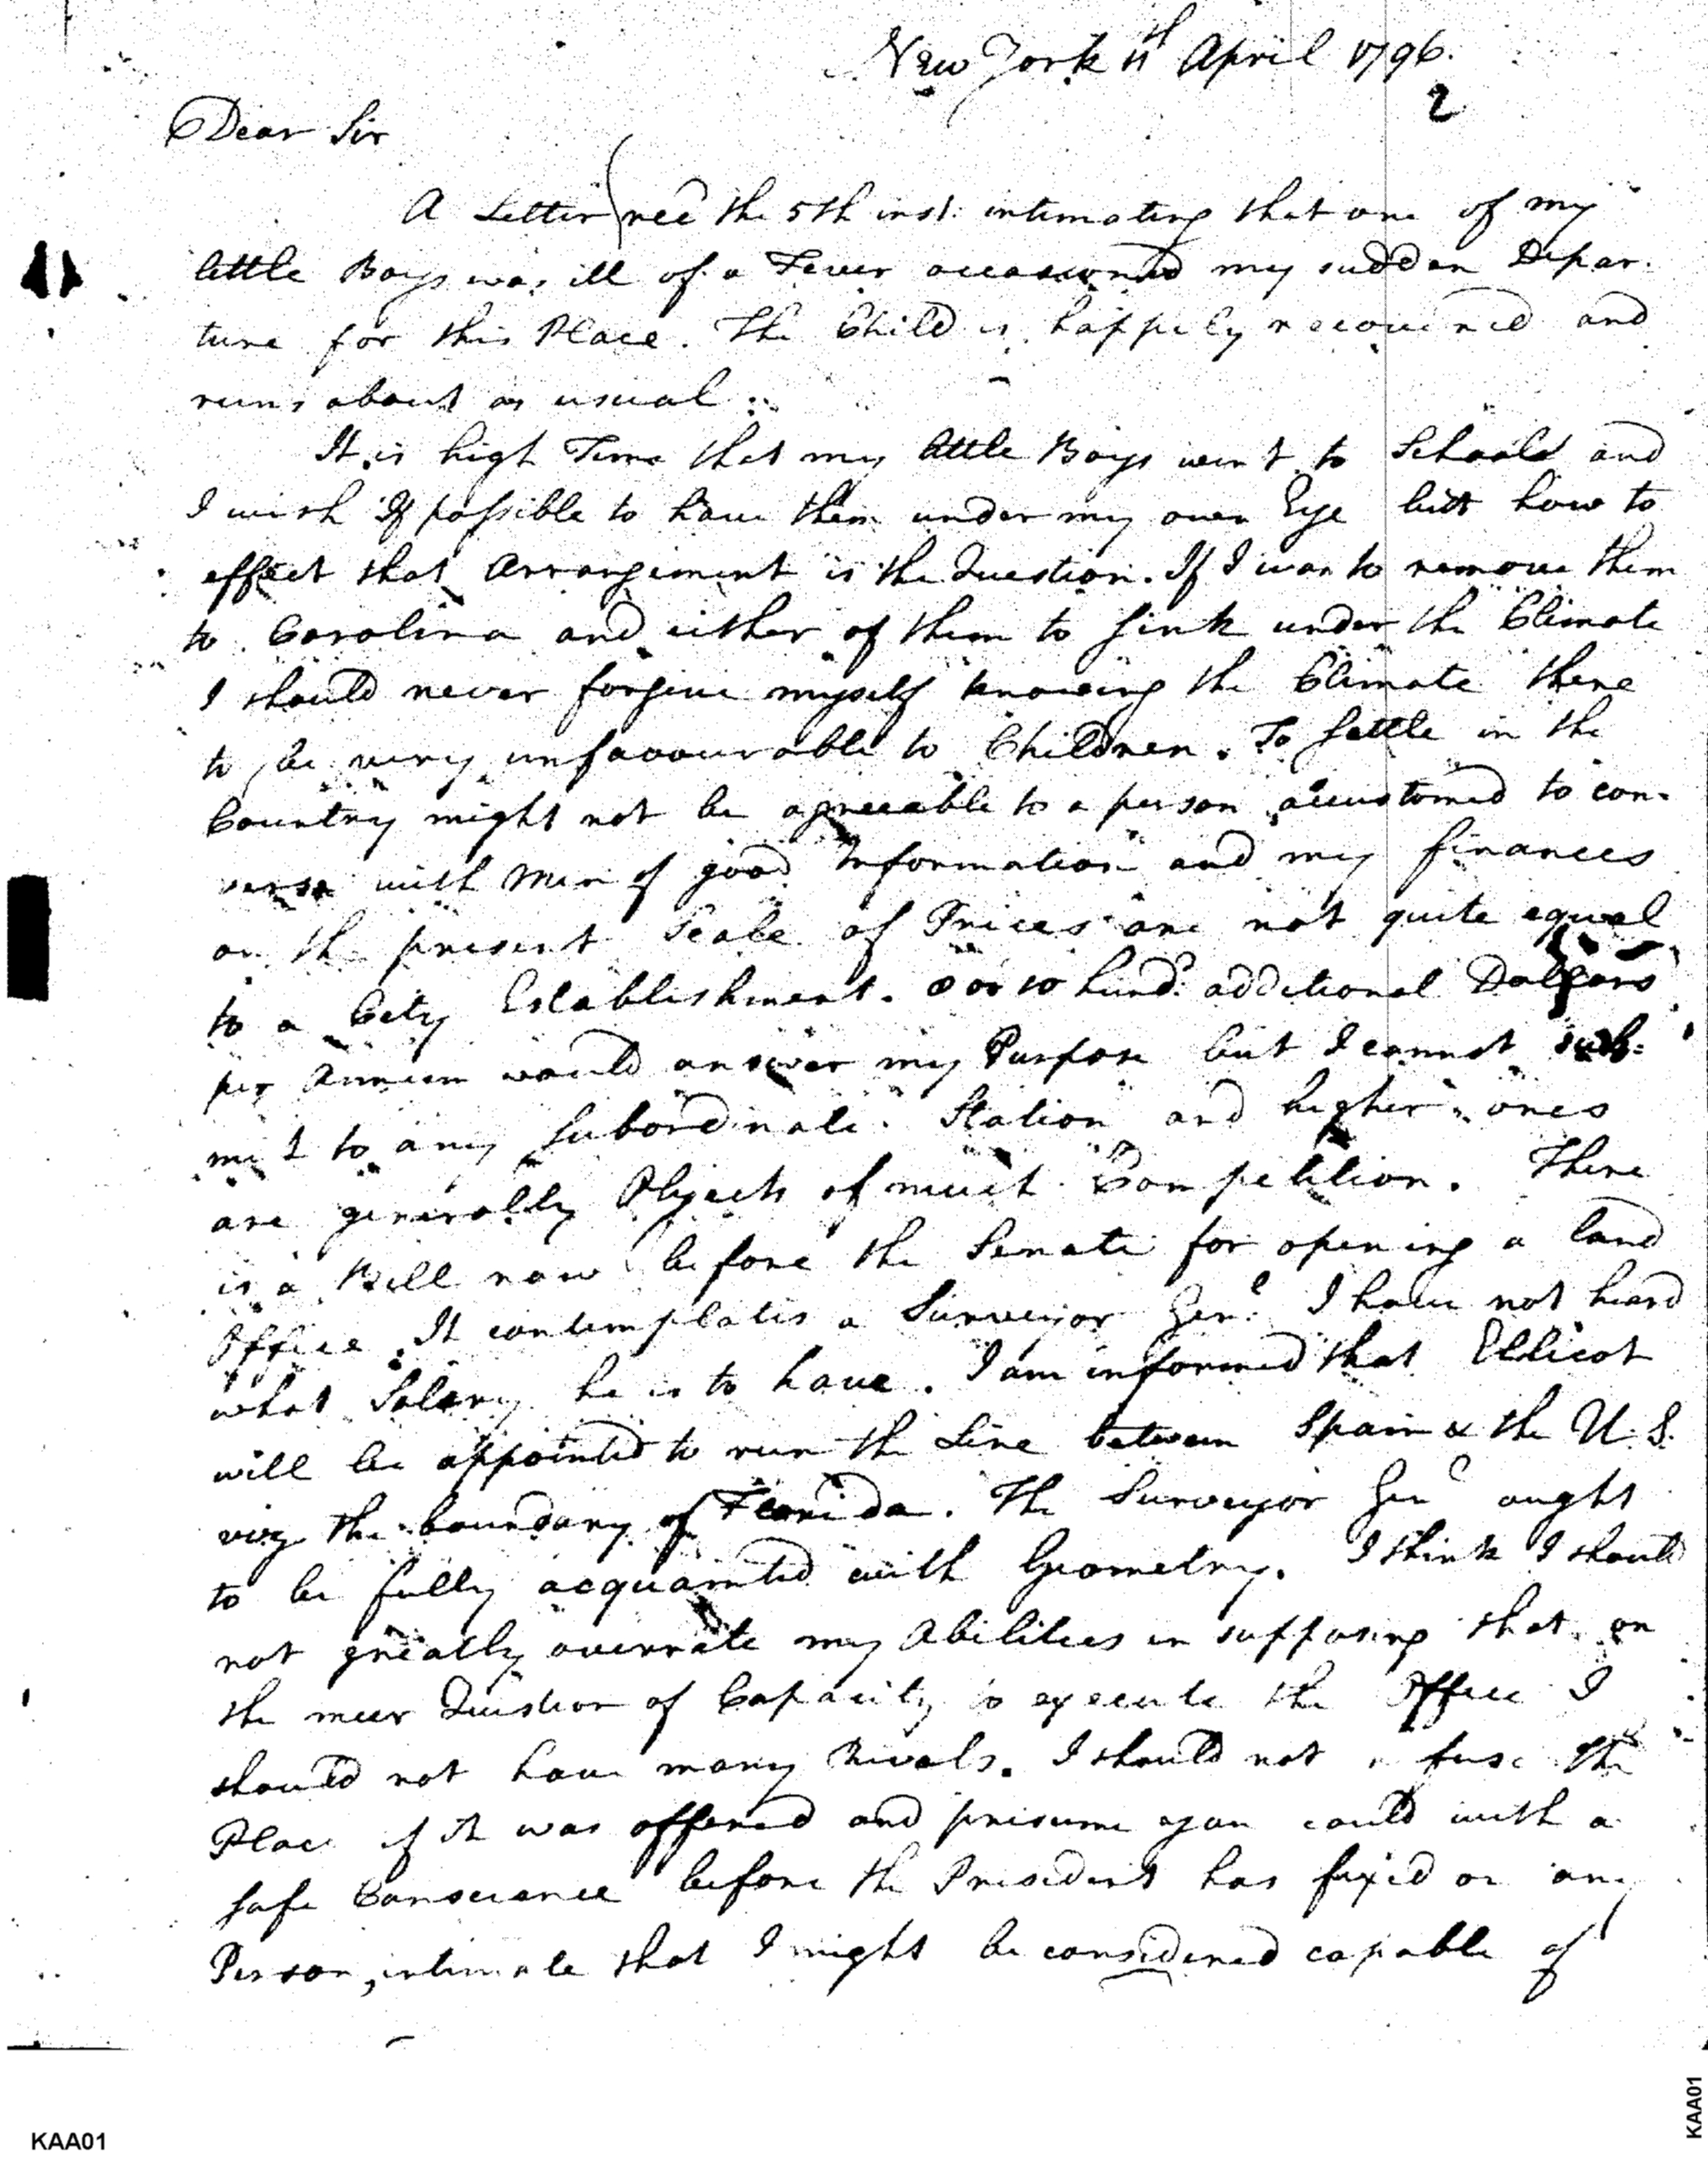 New York 11th April 1796.
2
Dear Sir
A Letter recd the 5th inst: intimating that one of my
little Boys was ill of a Fever occasioned my sudden Depar-
ture for this Place. The Child is happily recovered and
runs about as usual.
It is high Time that my little Boys went to Schools and
I wish If possible to have them under my own Eye but how to
effect that Arrangement is the Question. If I was to remove them
to Carolina and either of them to sink under the Climate
I should never forgive myself knowing the Climate there
to be very unfavourable to Children. To settle in the
Country might not be agreeable to a person accustomed to con-
verse with Men of good Information and my finances
on the present Scale of Prices are not quite equal
to a City Establishment. 8 or 10 hund.d additional Dollars
per Annum would answer my Purpose but I cannot sub=
mit to any subordinate Station and higher ones
are generally Objects of much Competition. There
is a Bill now before the Senate for opening a land
Office. It contemplates a Surveyor Gen.l I have not heard
what Salary he is to have. I am informed that Ellicot
will be appointed to run the Line between Spain & the U.S.
viz the boundary of Florida. The Surveyor Genl ought
to be fully acquainted with Geometry. I think I should
not greatly overrate my Abilities in supposing that on
the meer Question of Capacity to execute the Office I
should not have many Rivals. I should not refuse the
Place if it was offered and presume you could with a
safe Conscience before the President has fixed on any
Person, intimate that I might be considered capable of
KAA01
KAA01